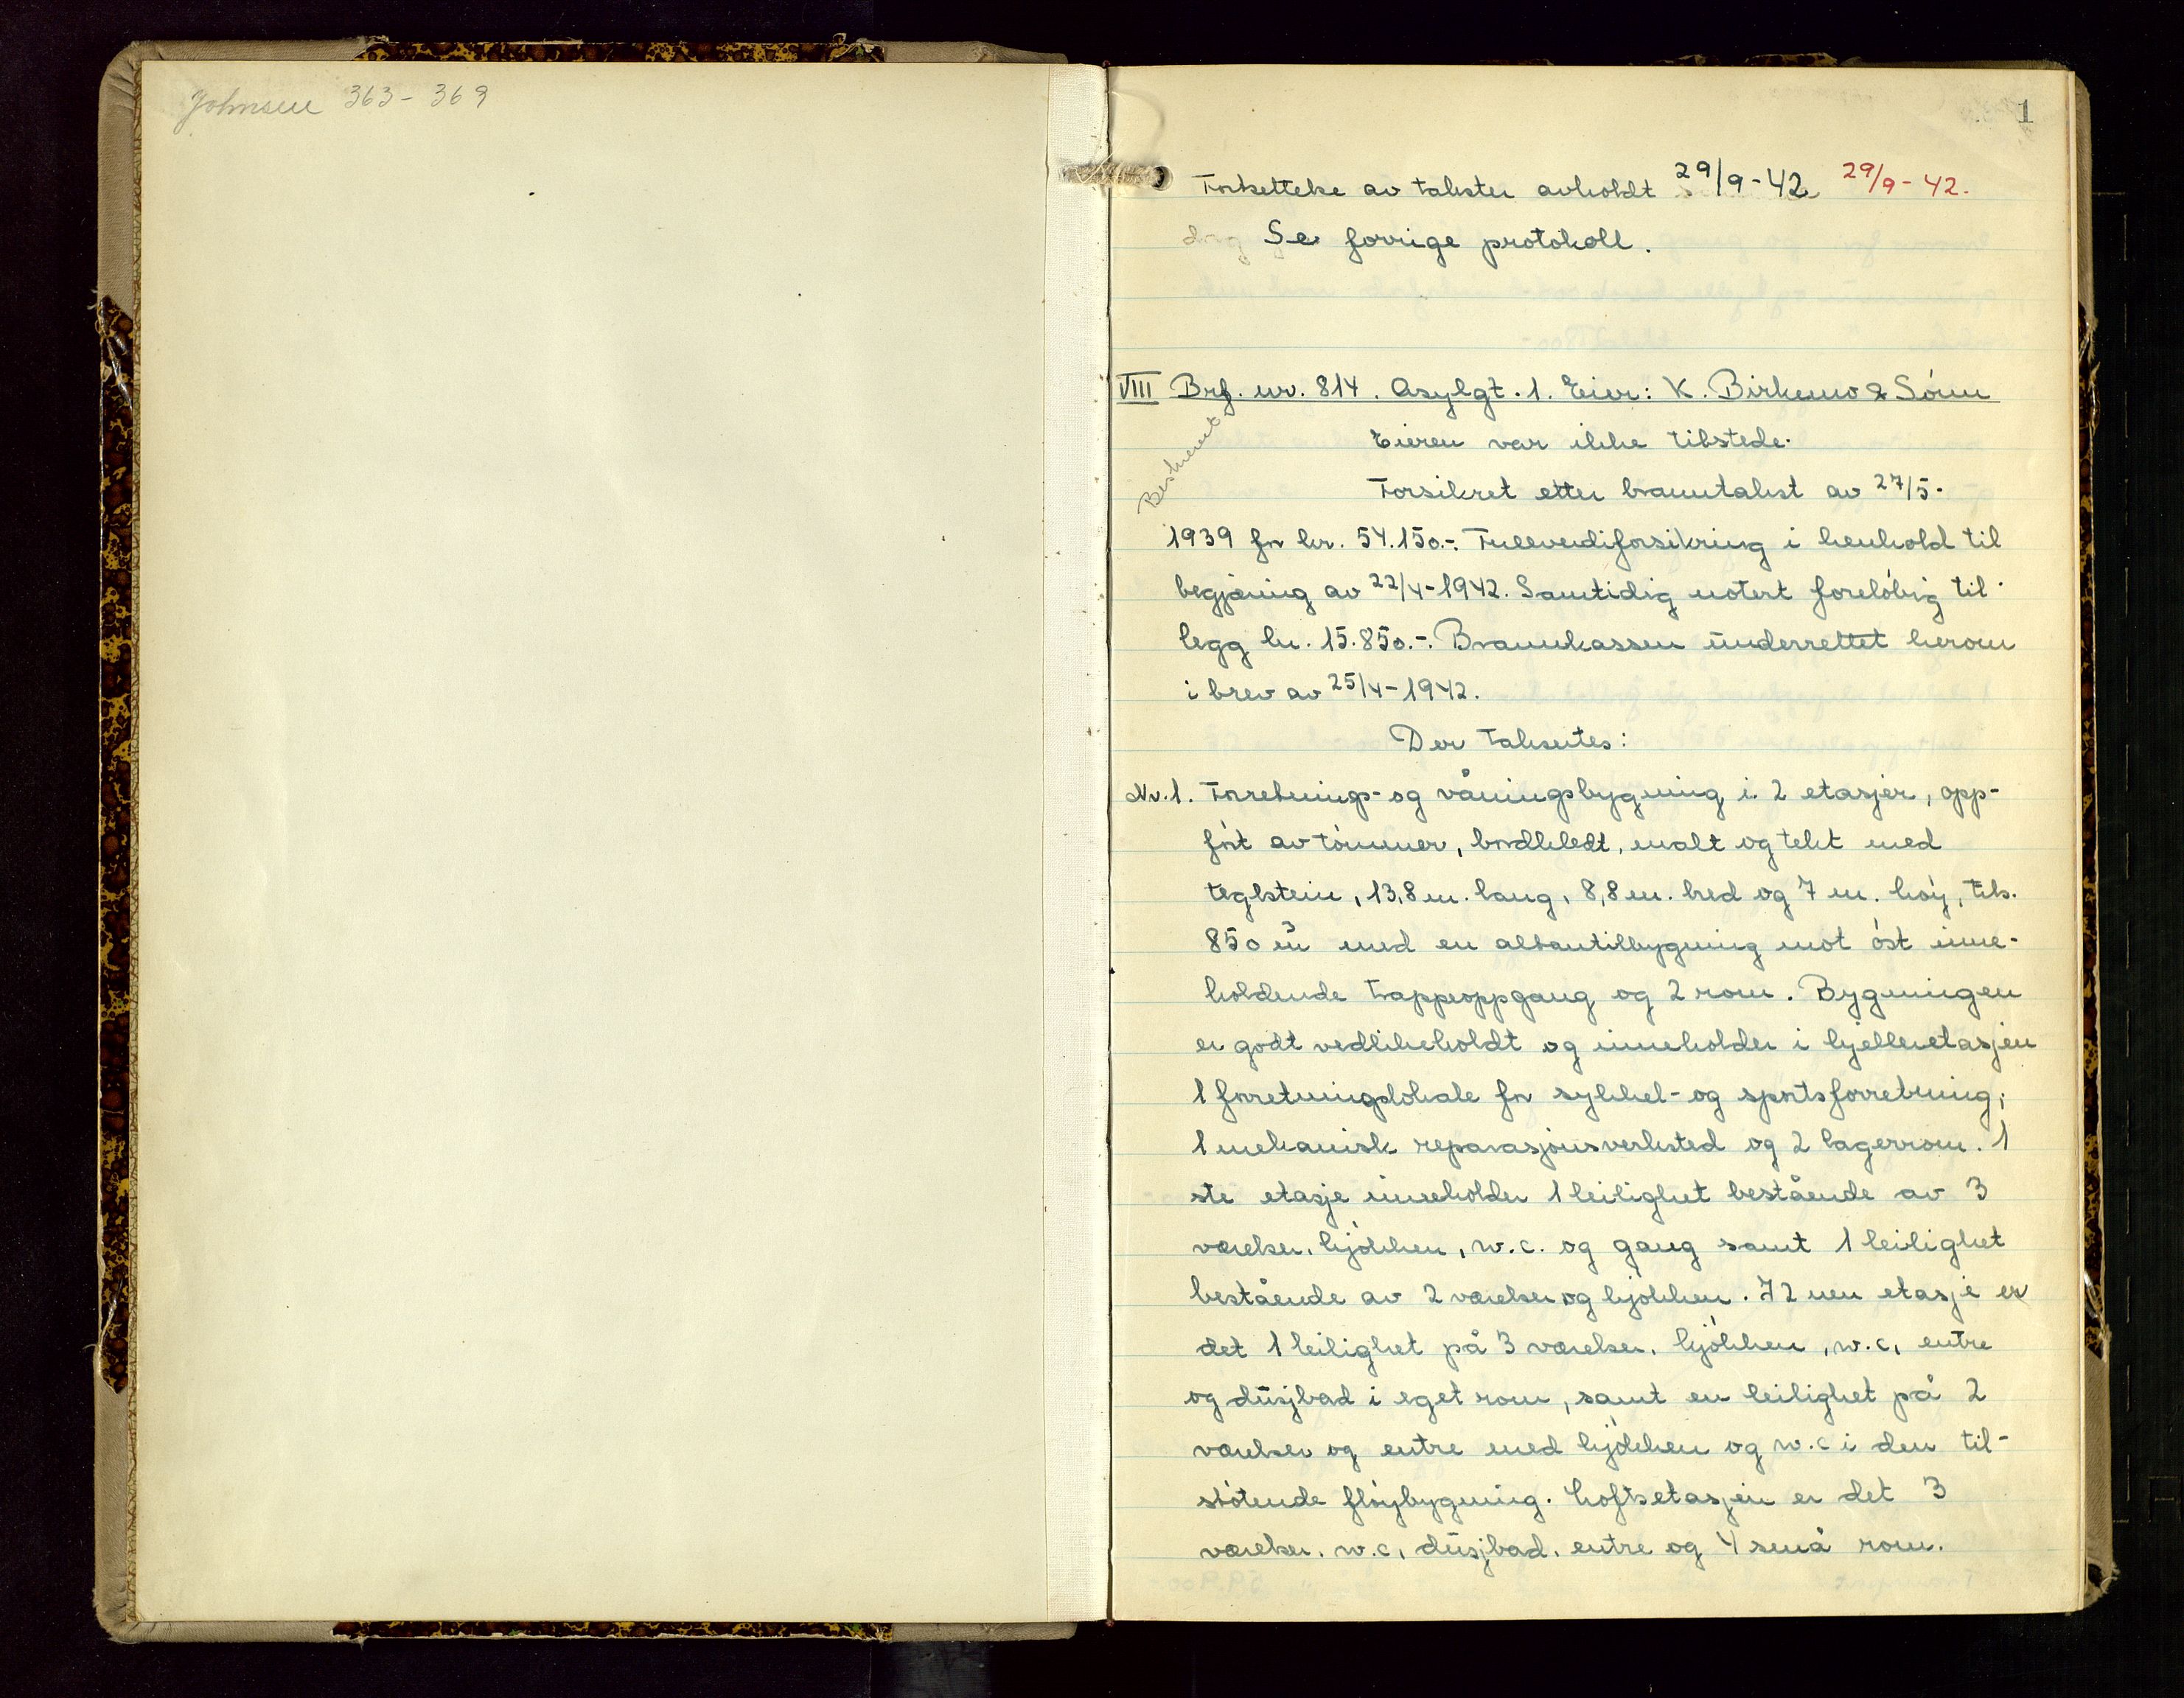 Johnsen 363-369
1
Fortsettelse av takster avholdt 29/9-42 29/9-42.
Se forrige protokoll.
VIII Brf. nr. 814. Asylgt. 1. Eier: K. Birkemo & Sönn
Eieren var ikke tilstede.
Forsikret etter branntakst av 27/5-
1939 for kr. 54.150.-. Fullverdiforsikring i henhold til
begjæring av 22/4-1942. Samtidig notert foreløbig til-
legg kr. 15.850.-. Brannkassen underrettet herom
i brev av 25/4-1942.
Der taksertes:
Nr. 1. Forretnings- og våningsbygning i 2 etasjer, opp-
fört av tömmer, bordkledt, malt og tekt med
teglstein, 13,8 m. lang, 8,8 m. bred og 7 m. höy, tils.
850 m³ med en altantilbygning mot öst inne-
holdende trappeoppgang og 2 rom. Bygningen
er godt vedlikeholdt og inneholder i kjelleretasjen
1 forretningslokale for sykkel- og sportsforretning;
1 mekanisk reparasjonsverksted og 2 lagerrom. 1
ste etasje inneholder 1 leilighet bestående av 3
værelser, kjökken, w.c. og gang samt 1 leilighet
bestående av 2 værelser og kjökken. I 2 nen etasje er
det 1 leilighet på 3 værelser, kjökken, w.c, entre
og dusjbad i eget rom, samt en leilighet på 2
værelser og entre med kjökken og w.c i den til-
stötende flöybygning. Loftsetasjen er det 3
værelser, w.c, dusjbad, entre og 4 små rom.